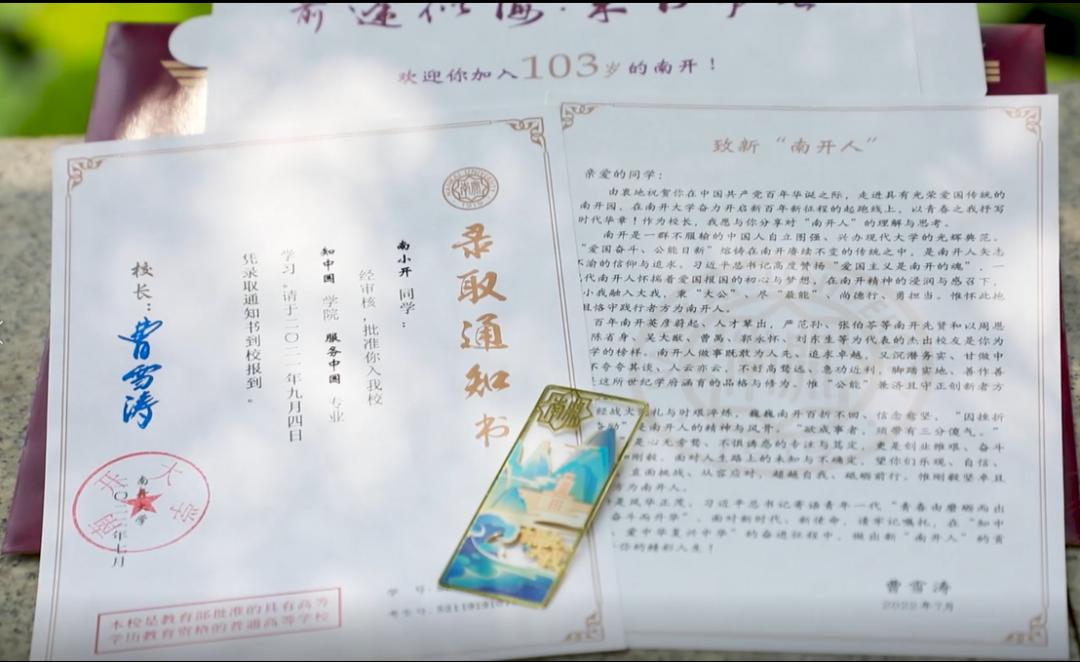 欢迎你加入103岁的南开！
录取通知书
南小开 同学：
经审核，批准你入我校
知中国 学院 服务中国 专业
学习。请于二〇二一年九月四日
凭录取通知书到校报到。
校长：曹雪涛
南开大学
二〇二一年七月
本校是教育部批准的具有高等
学历教育资格的普通高等学校
学 号：
考生号：
致新“南开人”
亲爱的同学：
由衷地祝贺你在中国共产党百年华诞之际，走进具有光荣爱国传统的
南开园，在南开大学奋力开启新百年新征程的起跑线上，以青春之我抒写
时代华章！作为校长，我愿与你分享对“南开人”的理解与思考。
南开是一群不服输的中国人自立图强、兴办现代大学的光辉典范。
“爱国奋斗、公能日新”熔铸在南开赓续不变的传统之中，是南开人矢志
不渝的信仰与追求。习近平总书记高度赞扬“爱国主义是南开的魂”，一
代南开人怀揣着爱国报国的初心与梦想，在南开精神的浸润与感召下，
小我融入大我，秉“大公”、尽“最能”、尚德行、勇担当。惟怀此地
且恪守践行者方为南开人。
百年南开英彦蔚起、人才辈出，严范孙、张伯苓等南开先贤和以周恩
陈省身、吴大猷、曹禺、郭永怀、刘东生等为代表的杰出校友是你为
学的榜样。南开人做事既敢为人先、追求卓越，又沉潜务实、甘做中
不夸夸其谈、人云亦云，不好高骛远、急功近利，脚踏实地、善作善
这所世纪学府涵育的品格与修为。惟“公能”兼济且守正创新者方
经战火洗礼与时艰淬炼，巍巍南开百折不回、信念愈坚。“因挫折
是南开人的精神与风骨。“欲成事者，须带有三分傻气。”
是心无旁骛、不惧诱惑的专注与笃定，更是创业维艰、奋斗
刚毅。面对人生路上的未知与不确定，望你们乐观、自信、
直面挑战、从容应对，超越自我、砥砺前行。惟刚毅坚卓且
方为南开人。
是风华正茂。习近平总书记寄语青年一代“青春由磨砺而出
奋斗而升华”。面对新时代、新使命，请牢记嘱托，在“知中
、爱中华复兴中华”的奋进征程中，做出新“南开人”的贡
你的精彩人生！
曹雪涛
2022年7月